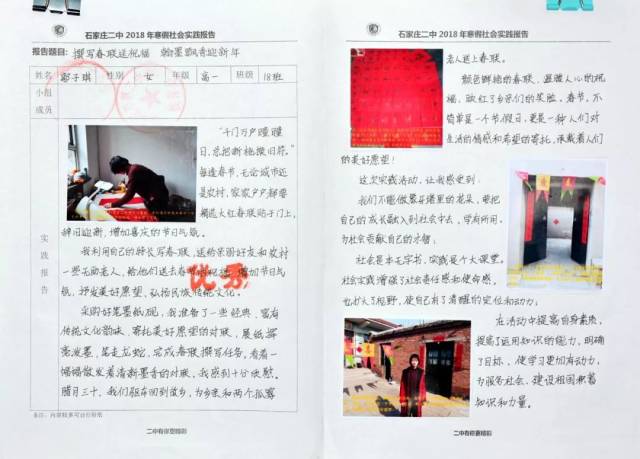 石家庄二中 2018 年寒假社会实践报告
报告题目: 撰写春联送祝福 翰墨飘香迎新年
姓名 鄢子琪 性别 女 年级 高一 班级 18班
小组
成员
实践报告
“千门万户曈曈
日,总把新桃换旧符。”
每逢春节,无论城市还
是农村,家家户户都要
辞旧迎新,增加喜庆的节日气氛。
我利用自己的特长写春联,送给亲朋好友和农村
一些无助老人,给他们送去春节的祝福,增加节日气
氛,抒发美好愿望,弘扬民族传统文化。
优秀
采购好笔墨纸砚,我准备了一些经典,富有
传统文化韵味、寄托美好愿望的对联,展纸挥
毫泼墨,笔走龙蛇,完成春联撰写任务。看着一
幅幅散发着清新墨香的对联,我感到十分欣慰。
腊月三十,我们驱车回到故乡,为乡亲和两个孤寡
备注:内容较多可自行附纸
二中有你更精彩
石家庄二中 2018 年寒假社会实践报告
老人送上春联。
颜色鲜艳的春联,温暖人心的祝
福,映红了乡亲们的笑脸。春节,不
简单是一个节假日,更是一种人们对
生活的情感和希望的寄托,承载着人们
的美好愿望!
这次实践活动,让我感受到:
我们不能做象牙塔里的花朵,要把
自己的成长融入到社会中去,学有所用,
为社会贡献自己的才智;
社会是本无字书,实践是个大课堂。
社会实践增强了社会责任感和使命感,
也扩大了视野,使自己有了清醒的定位和动力;
在活动中提高自身素质,
提高了运用知识的能力,明确
了目标,使学习更加有动力,
为服务社会、建设祖国积蓄
知识和力量。
二中有你更精彩